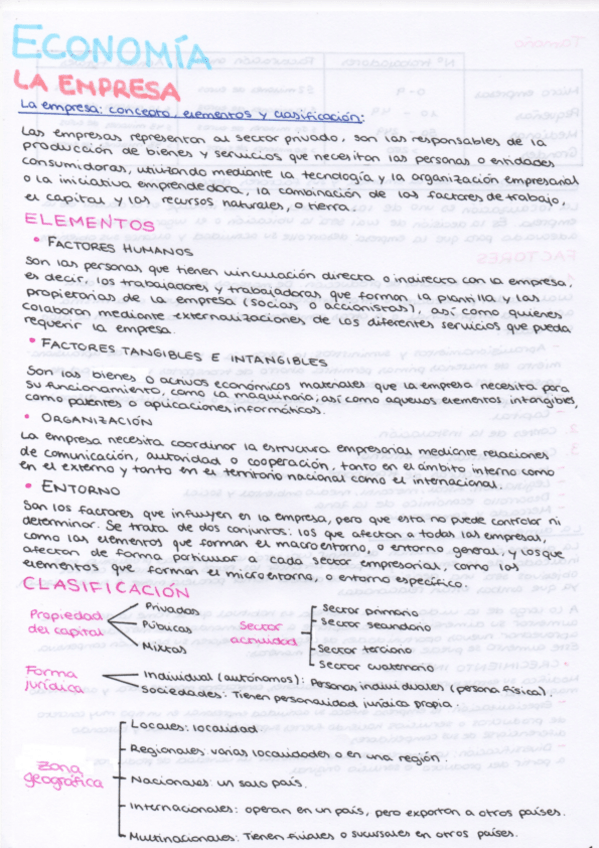 ECONOMÍA
LA EMPRESA
La empresa: concepto, elementos y clasificación:
Las empresas representan al sector privado, son las responsables de la
producción de bienes y servicios que necesitan las personas o entidades
consumidoras, utilizando mediante la tecnología y la organización empresarial
o la iniciativa emprendedora, la combinación de los factores de trabajo,
el capital y los recursos naturales, o tierra.
ELEMENTOS
• FACTORES HUMANOS
Son las personas que tienen vinculación directa o indirecta con la empresa,
es decir, los trabajadores y trabajadoras que forman la plantilla y las
propietarias de la empresa (socias o accionistas), así como quienes
colaboran mediante externalizaciones de los diferentes servicios que pueda
requerir la empresa.
• FACTORES TANGIBLES E INTANGIBLES
Son los bienes o activos económicos materiales que la empresa necesita para
su funcionamiento, como la maquinaria; así como aquellos elementos intangibles,
como patentes o aplicaciones informáticas.
• ORGANIZACIÓN
La empresa necesita coordinar la estructura empresarial mediante relaciones
de comunicación, autoridad o cooperación, tanto en el ámbito interno como
en el externo y tanto en el territorio nacional como el internacional.
• ENTORNO
Son los factores que influyen en la empresa, pero que esta no puede controlar ni
determinar. Se trata de dos conjuntos: los que afectan a todas las empresas,
como los elementos que forman el macroentorno, o entorno general, y los que
afectan de forma particular a cada sector empresarial, como los
elementos que forman el microentorno, o entorno específico.
CLASIFICACIÓN
Propiedad del capital
Privadas
Públicas
Mixtas
Sector actividad
Sector primario
Sector secundario
Sector terciario
Sector cuaternario
Forma jurídica
Individual (autónomos): Personas individuales (persona física).
Sociedades: Tienen personalidad jurídica propia.
Zona geográfica
Locales: localidad
Regionales: varias localidades o en una región.
Nacionales: un solo país.
Internacionales: operan en un país, pero exportan a otros países.
Multinacionales: Tienen filiales o sucursales en otros países.